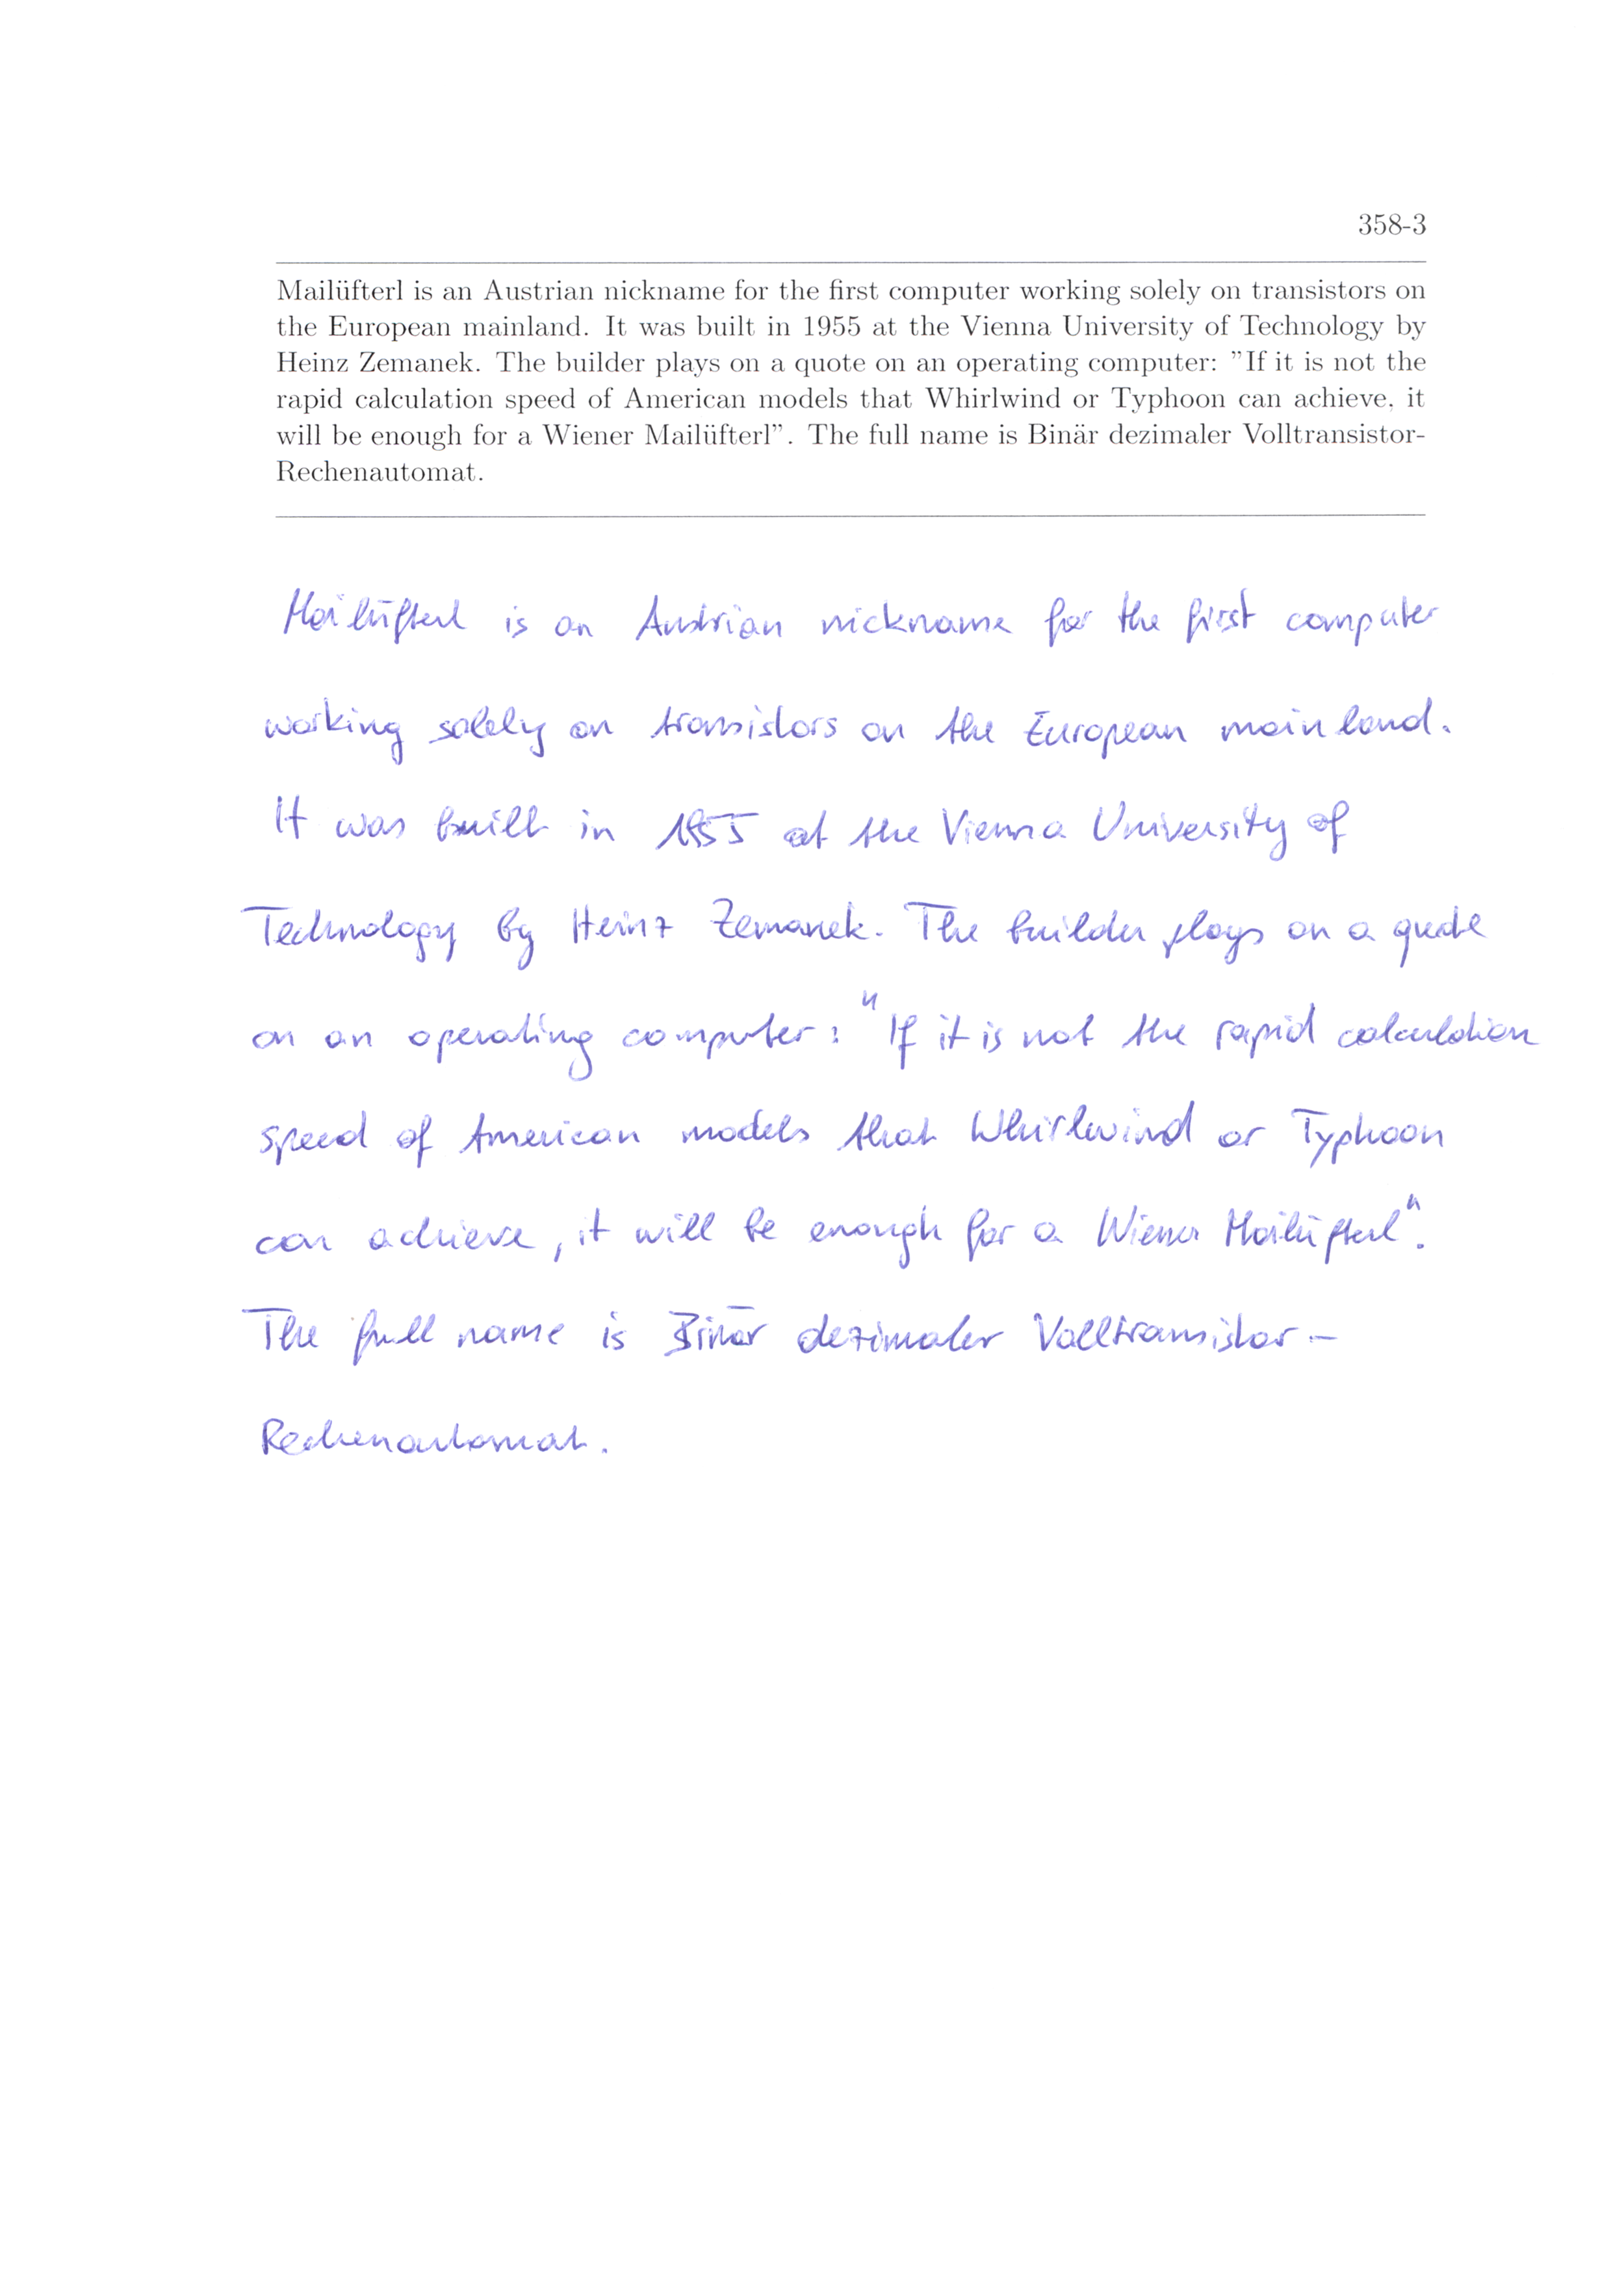 358-3
Mailüfterl is an Austrian nickname for the first computer working solely on transistors on
the European mainland. It was built in 1955 at the Vienna University of Technology by
Heinz Zemanek. The builder plays on a quote on an operating computer: "If it is not the
rapid calculation speed of American models that Whirlwind or Typhoon can achieve, it
will be enough for a Wiener Mailüfterl". The full name is Binär dezimaler Volltransistor-
Rechenautomat.
Mailüfterl is an Austrian nickname for the first computer
working solely on transistors on the European mainland.
It was built in 1955 at the Vienna University of
Technology by Heinz Zemanek. The builder plays on a quote
on an operating computer: "If it is not the rapid calculation
speed of American models that Whirlwind or Typhoon
can achieve, it will be enough for a Wiener Mailüfterl".
The full name is Binär dezimaler Volltransistor-
Rechenautomat.